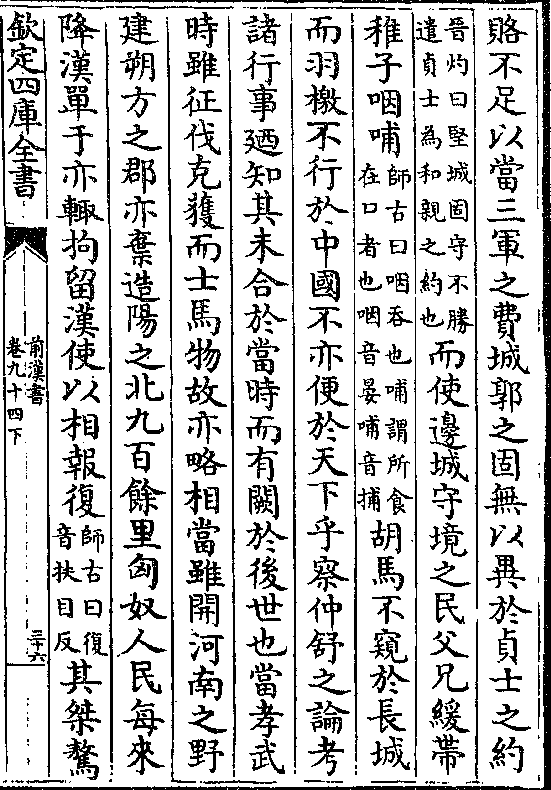 賂不足以當三軍之費城郭之固無以異於貞士之約
晉灼曰堅城固守不勝
遣貞士為和親之約也
而使邊城守境之民父兄緩帶
稚子咽哺
師古曰咽吞也哺謂所食
在口者也咽音晏哺音捕
胡馬不窺於長城
而羽檄不行於中國不亦便於天下乎察仲舒之論考
諸行事廼知其未合於當時而有闕於後世也當孝武
時雖征伐克獲而士馬物故亦略相當雖開河南之野
建朔方之郡亦棄造陽之北九百餘里匈奴人民每來
降漢單于亦輙拘留漢使以相報復
師古曰復
音扶目反
其桀驁
欽定四庫全書
前漢書
卷九十四下
三十六